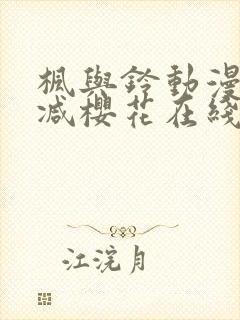 楓與鈴動漫
減櫻花在綫
江浣月